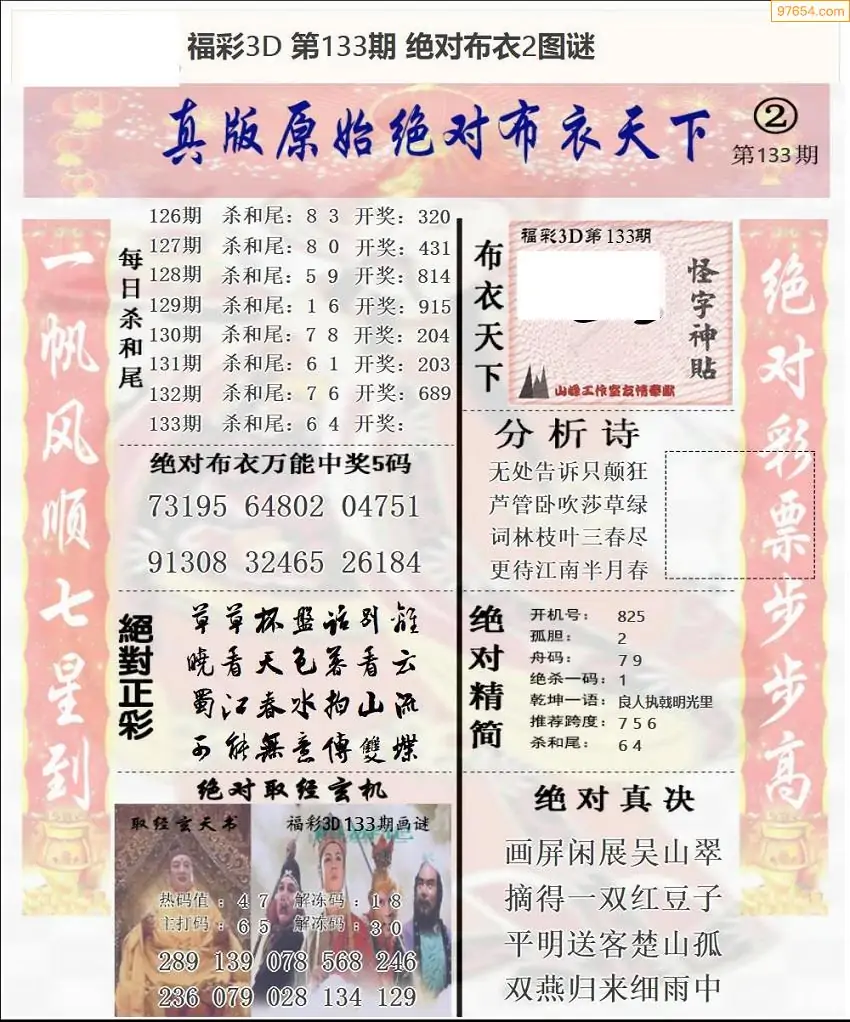 97654.com
福彩3D 第133期 绝对布衣2图谜
真版原始绝对布衣天下
②
第133期
一帆风顺七星到
每日杀和尾
126期 杀和尾：8 3 开奖：320
127期 杀和尾：8 0 开奖：431
128期 杀和尾：5 9 开奖：814
129期 杀和尾：1 6 开奖：915
130期 杀和尾：7 8 开奖：204
131期 杀和尾：6 1 开奖：203
132期 杀和尾：7 6 开奖：689
133期 杀和尾：6 4 开奖：
绝对布衣万能中奖5码
73195 64802 04751
91308 32465 26184
絕對正彩
草草杯盤话别離
晓看天色暮看云
蜀江春水拍山流
不能無意傳雙蝶
绝对取经玄机
取经玄天书
福彩3D133期画谜
热码值：4 7 解冻码：1 8
主打码：6 5 解冻码：3 0
289 139 078 568 246
236 079 028 134 129
布衣天下
福彩3D第133期
怪字神贴
山峰工作室友情奉献
分析诗
无处告诉只颠狂
芦管卧吹莎草绿
词林枝叶三春尽
更待江南半月春
绝对精简
开机号：825
孤胆：2
舟码：7 9
绝杀一码：1
乾坤一语：良人执戟明光里
推荐跨度：7 5 6
杀和尾：6 4
绝对真决
画屏闲展吴山翠
摘得一双红豆子
平明送客楚山孤
双燕归来细雨中
绝对彩票步步高